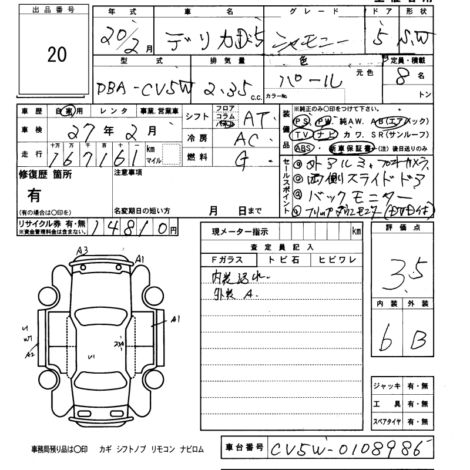 出品番号
20
年式
車名
グレード
ドア 形状
20/2月
デリカD:5
シャモニー
5 SW
型式
排気量
色
定員・積載
DBA-CV5W
2.35 c.c.
パール
元色
カラーNo.
8 名
トン
車歴 自家用 レンタ 事業 営業車
車検 27年 2月
走行 十万 万 千 百 十 一
167161 km マイル
シフト フロア コラム AT
冷房 AC
燃料 G
装備品
※純正のみ○印をつけて下さい。
PS PW 純AW. AB(エアバック)
TV ナビ カワ. SR(サンルーフ)
ABS 新車保証書 後日送りのみ
修復歴 箇所
有
(有の場合は○印を)
注意事項
名変期日の短い方 月 日まで
セールスポイント
両側スライドドア
バックモニター
リサイクル券 有・無
※資金管理料金は含まない。
14810 円
現メーター指示 km
査定員記入
Fガラス トビ石 ヒビワレ
内装汚れ
外装 A.
評価点
3.5
内装 外装
6 B
A3
A1
A1
U1
A2
U1
ジャッキ 有・無
工具 有・無
スペアタイヤ 有・無
事務局預り品は○印 カギ シフトノブ リモコン ナビロム
車台番号 CV5W-0108986